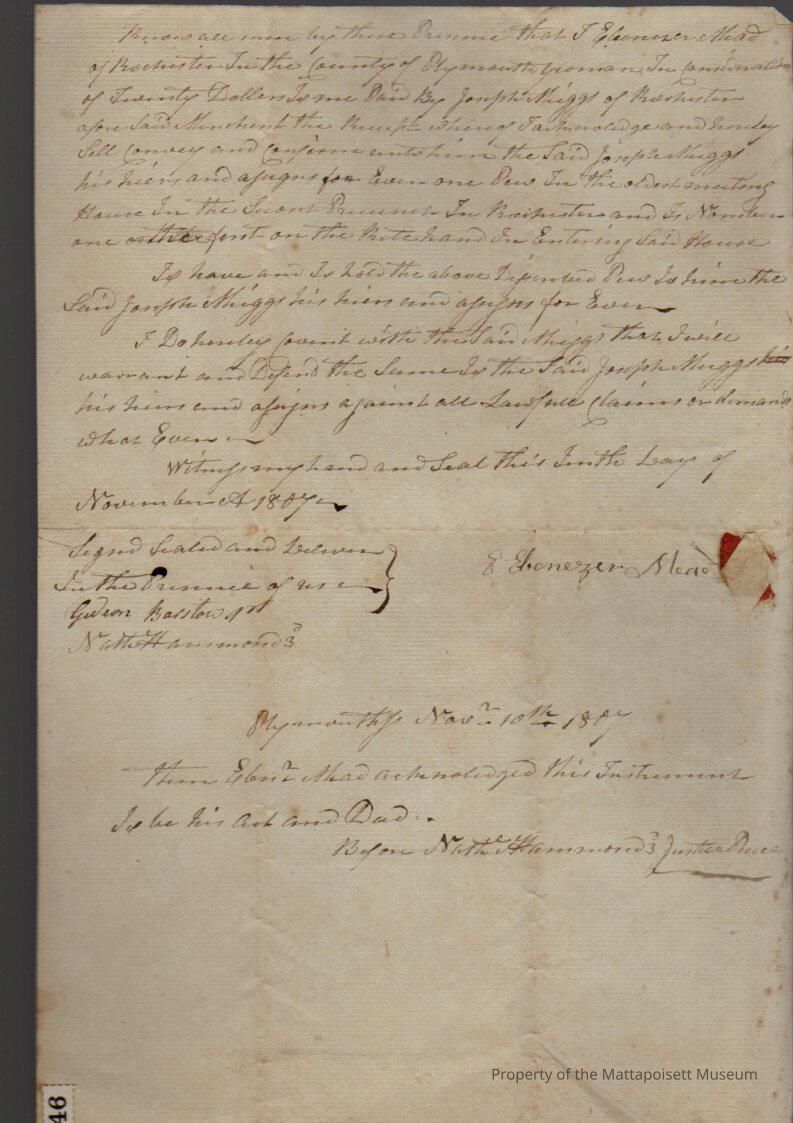 Know all men by these Presence that I Ebenezer Mead
of Rochester In the County of Plymouth yeoman In Consideration
of Twenty Dollers To me Paid By Joseph Meiggs of Rochester
afore Said Merchent the Receipt whereof I acknowledge and hereby
Sell Convey and Confirm unto him the Said Joseph Meiggs
his heirs and assigns for Ever one Pew In the oldest meeting
House In the Second Precinct In Rochester and Is Number
one on the first on the Rite hand In Entering Said House
To have and To hold the above Pew To him the
Said Joseph Meiggs his heirs and assigns for Ever
I Do hereby Covint with the Said Meiggs that I will
warrant and Defend the Same To the Said Joseph Meiggs his
his heirs and assigns against all Lawfull Claims or demands
what Ever
Witness my hand and Seal this Tenth Day of
November AD 1807
Signd Sealed and
In the Presence of us
Gideon Barstow 1st
Nathl Hammond 3d
Ebenezer Mead
Plymouth Ss Novr 10th 1807
then Ebenr Mead acknoledged this Instrument
To be his act and Deed
Before Nathl Hammond 3d Justice Peace
46
Property of the Mattapoisett Museum